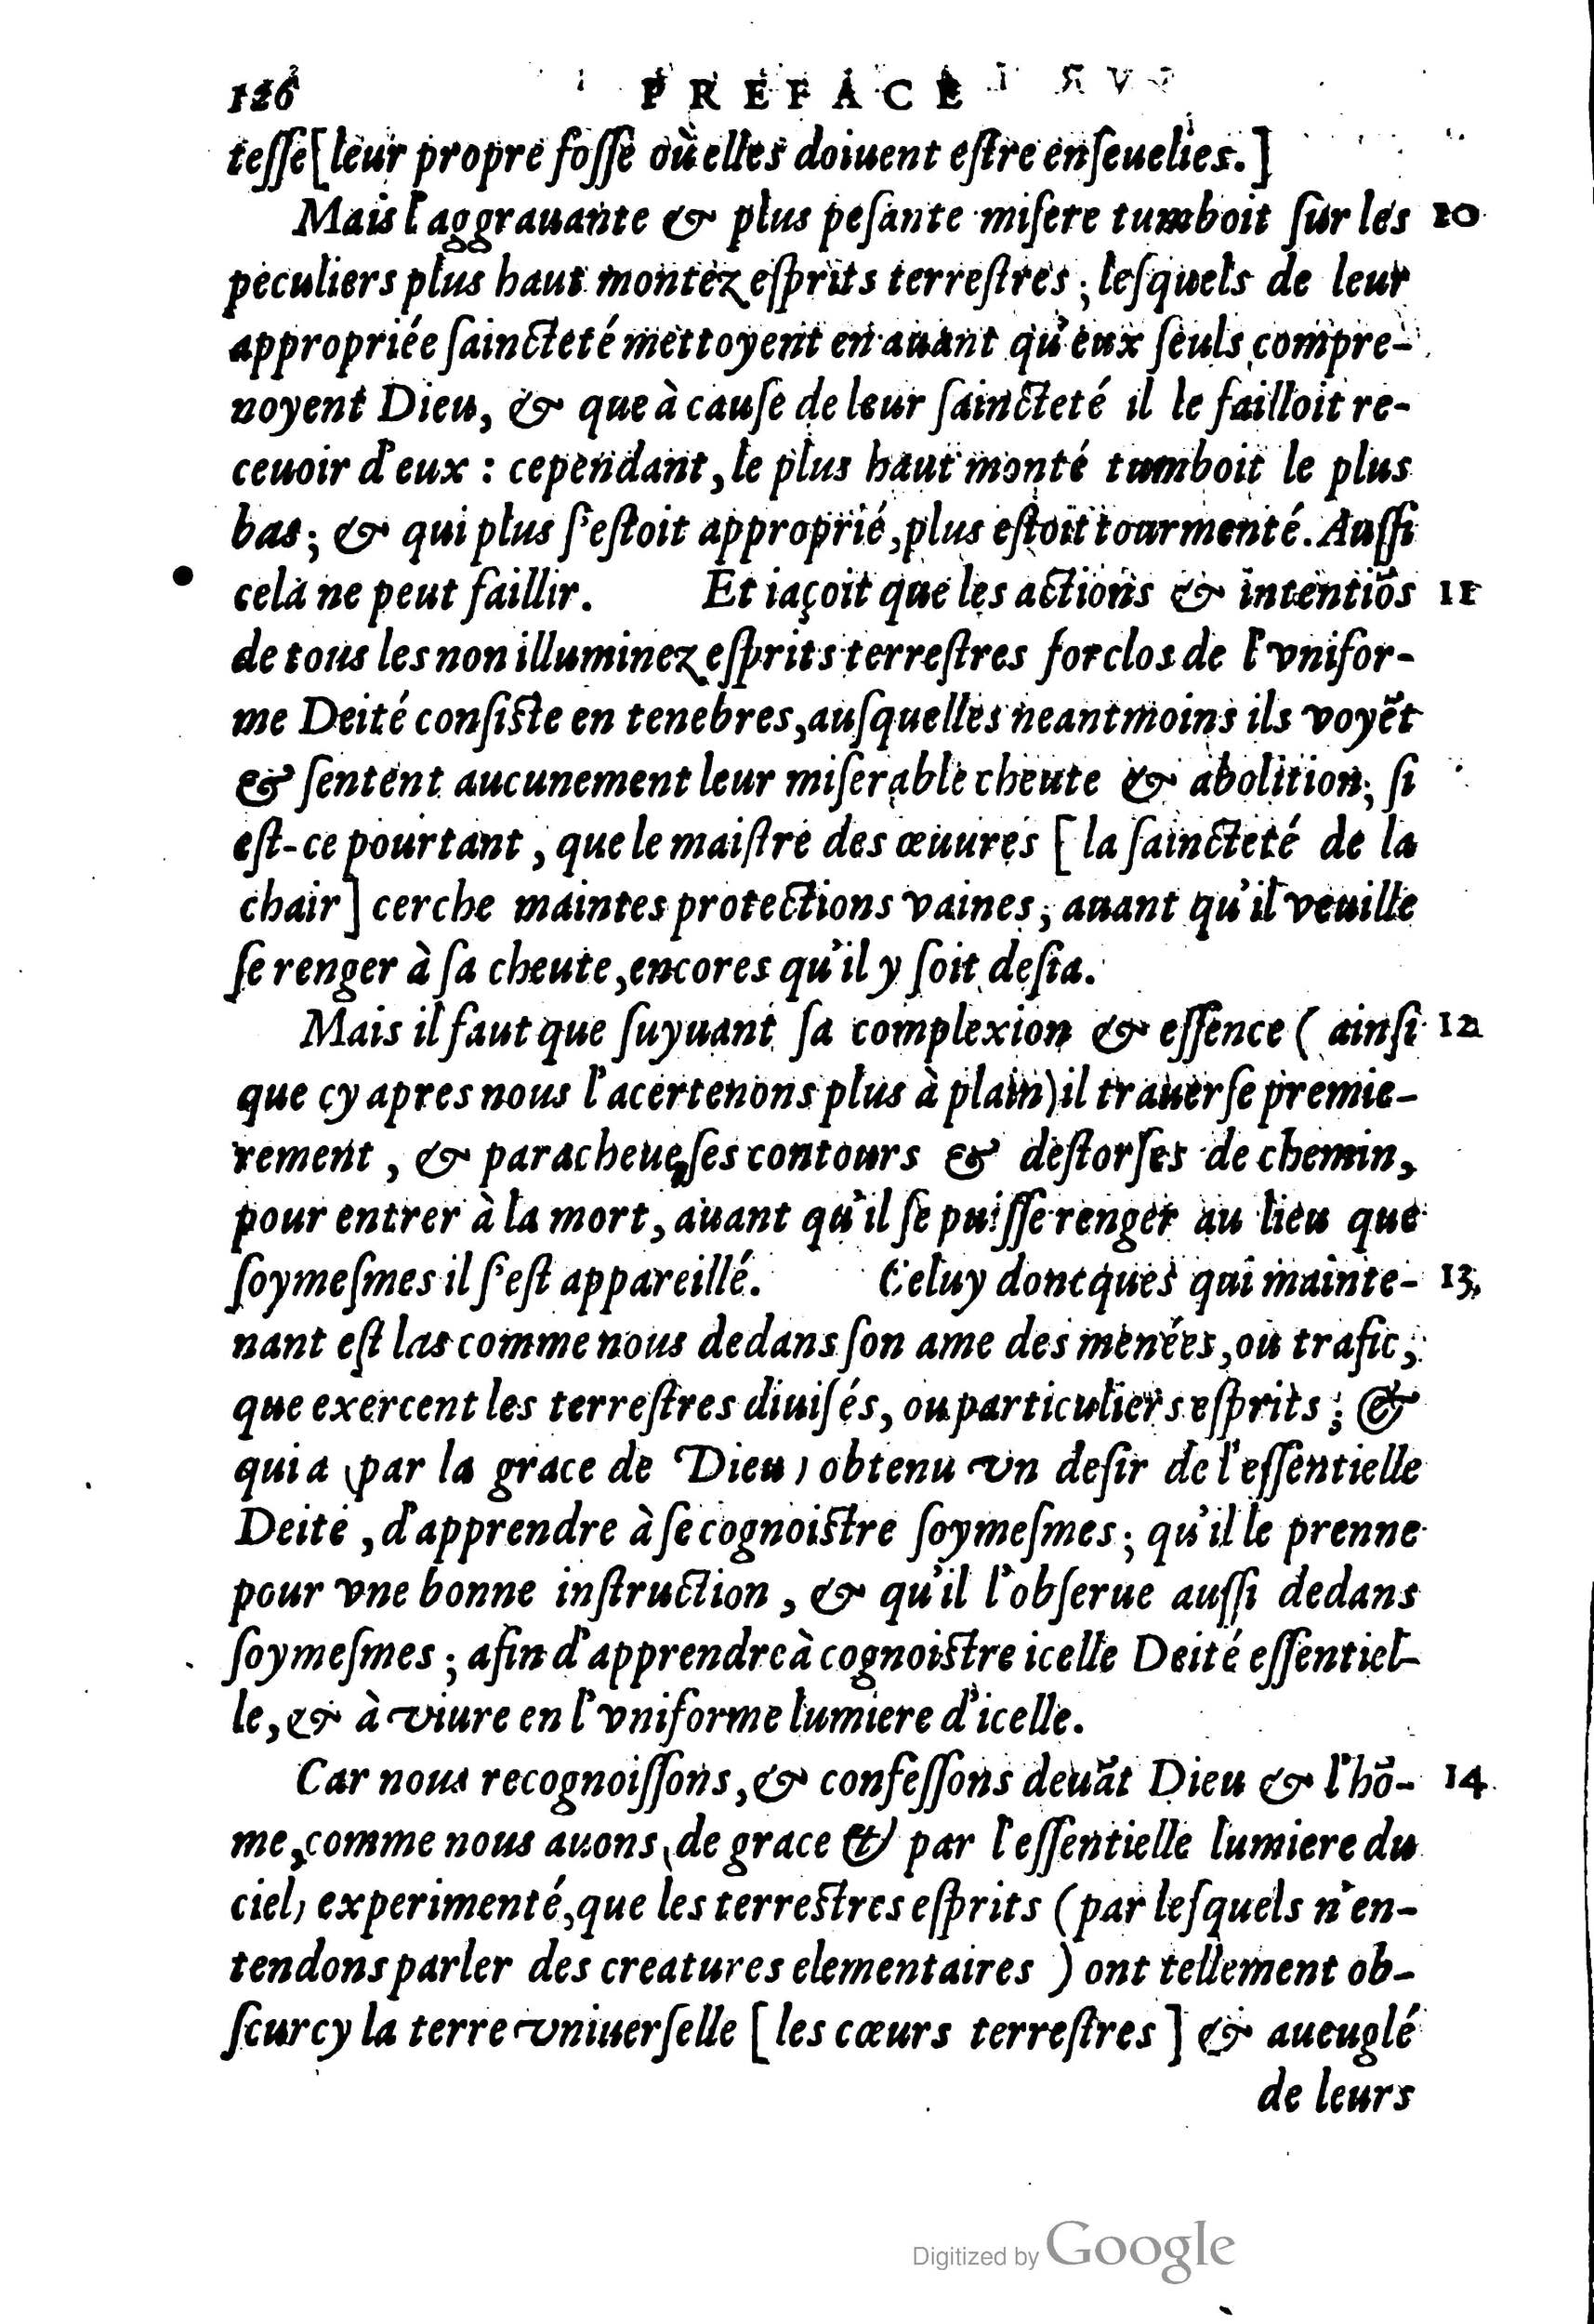 126 PREFACE
teſſe [leur propre foſſe où elles doiuent eſtre enſeuelies.]
Mais l'aggrauante & plus peſante miſere tumboit ſur les 10
peculiers plus haut montez eſprits terreſtres; leſquels de leur
appropriée ſaincteté mettoyent en auant qu'eux ſeuls compre-
noyent Dieu, & que à cauſe de leur ſaincteté il le failloit re-
ceuoir d'eux : cependant, le plus haut monté tumboit le plus
bas; & qui plus ſ'eſtoit approprié, plus eſtoit tourmenté. Auſſi
cela ne peut faillir. Et iaçoit que les actions & intentiōs 11
de tous les non illuminez eſprits terreſtres forclos de l'vnifor-
me Deité conſiſte en tenebres, auſquelles neantmoins ils voyēt
& ſentent aucunement leur miſerable cheute & abolition; ſi
eſt-ce pourtant, que le maiſtre des œuures [la ſaincteté de la
chair] cerche maintes protections vaines, auant qu'il veuille
ſe renger à ſa cheute, encores qu'il y ſoit deſia.
Mais il faut que ſuyuant ſa complexion & eſſence ( ainſi 12
que cy apres nous l'acertenons plus à plain) il trauerſe premie-
rement, & paracheue, ſes contours & deſtorſes de chemin,
pour entrer à la mort, auant qu'il ſe puiſſe renger au lieu que
ſoymeſmes il ſ'eſt appareillé. Celuy doncques qui mainte- 13.
nant eſt las comme nous dedans ſon ame des menées, ou trafic,
que exercent les terreſtres diuiſés, ou particuliers eſprits; &
qui a (par la grace de Dieu) obtenu vn deſir de l'eſſentielle
Deité, d'apprendre à ſe cognoiſtre ſoymeſmes; qu'il le prenne
pour vne bonne inſtruction, & qu'il l'obſerue auſſi dedans
ſoymeſmes; afin d'apprendre à cognoiſtre icelle Deité eſſentiel-
le, & à viure en l'vniforme lumiere d'icelle.
Car nous recognoiſſons, & confeſſons deuāt Dieu & l'hō- 14.
me, comme nous auons (de grace & par l'eſſentielle lumiere du
ciel) experimenté, que les terreſtres eſprits (par leſquels n'en-
tendons parler des creatures elementaires ) ont tellement ob-
ſcurcy la terre vniuerſelle [les cœurs terreſtres] & aueuglé
de leurs
Digitized by Google